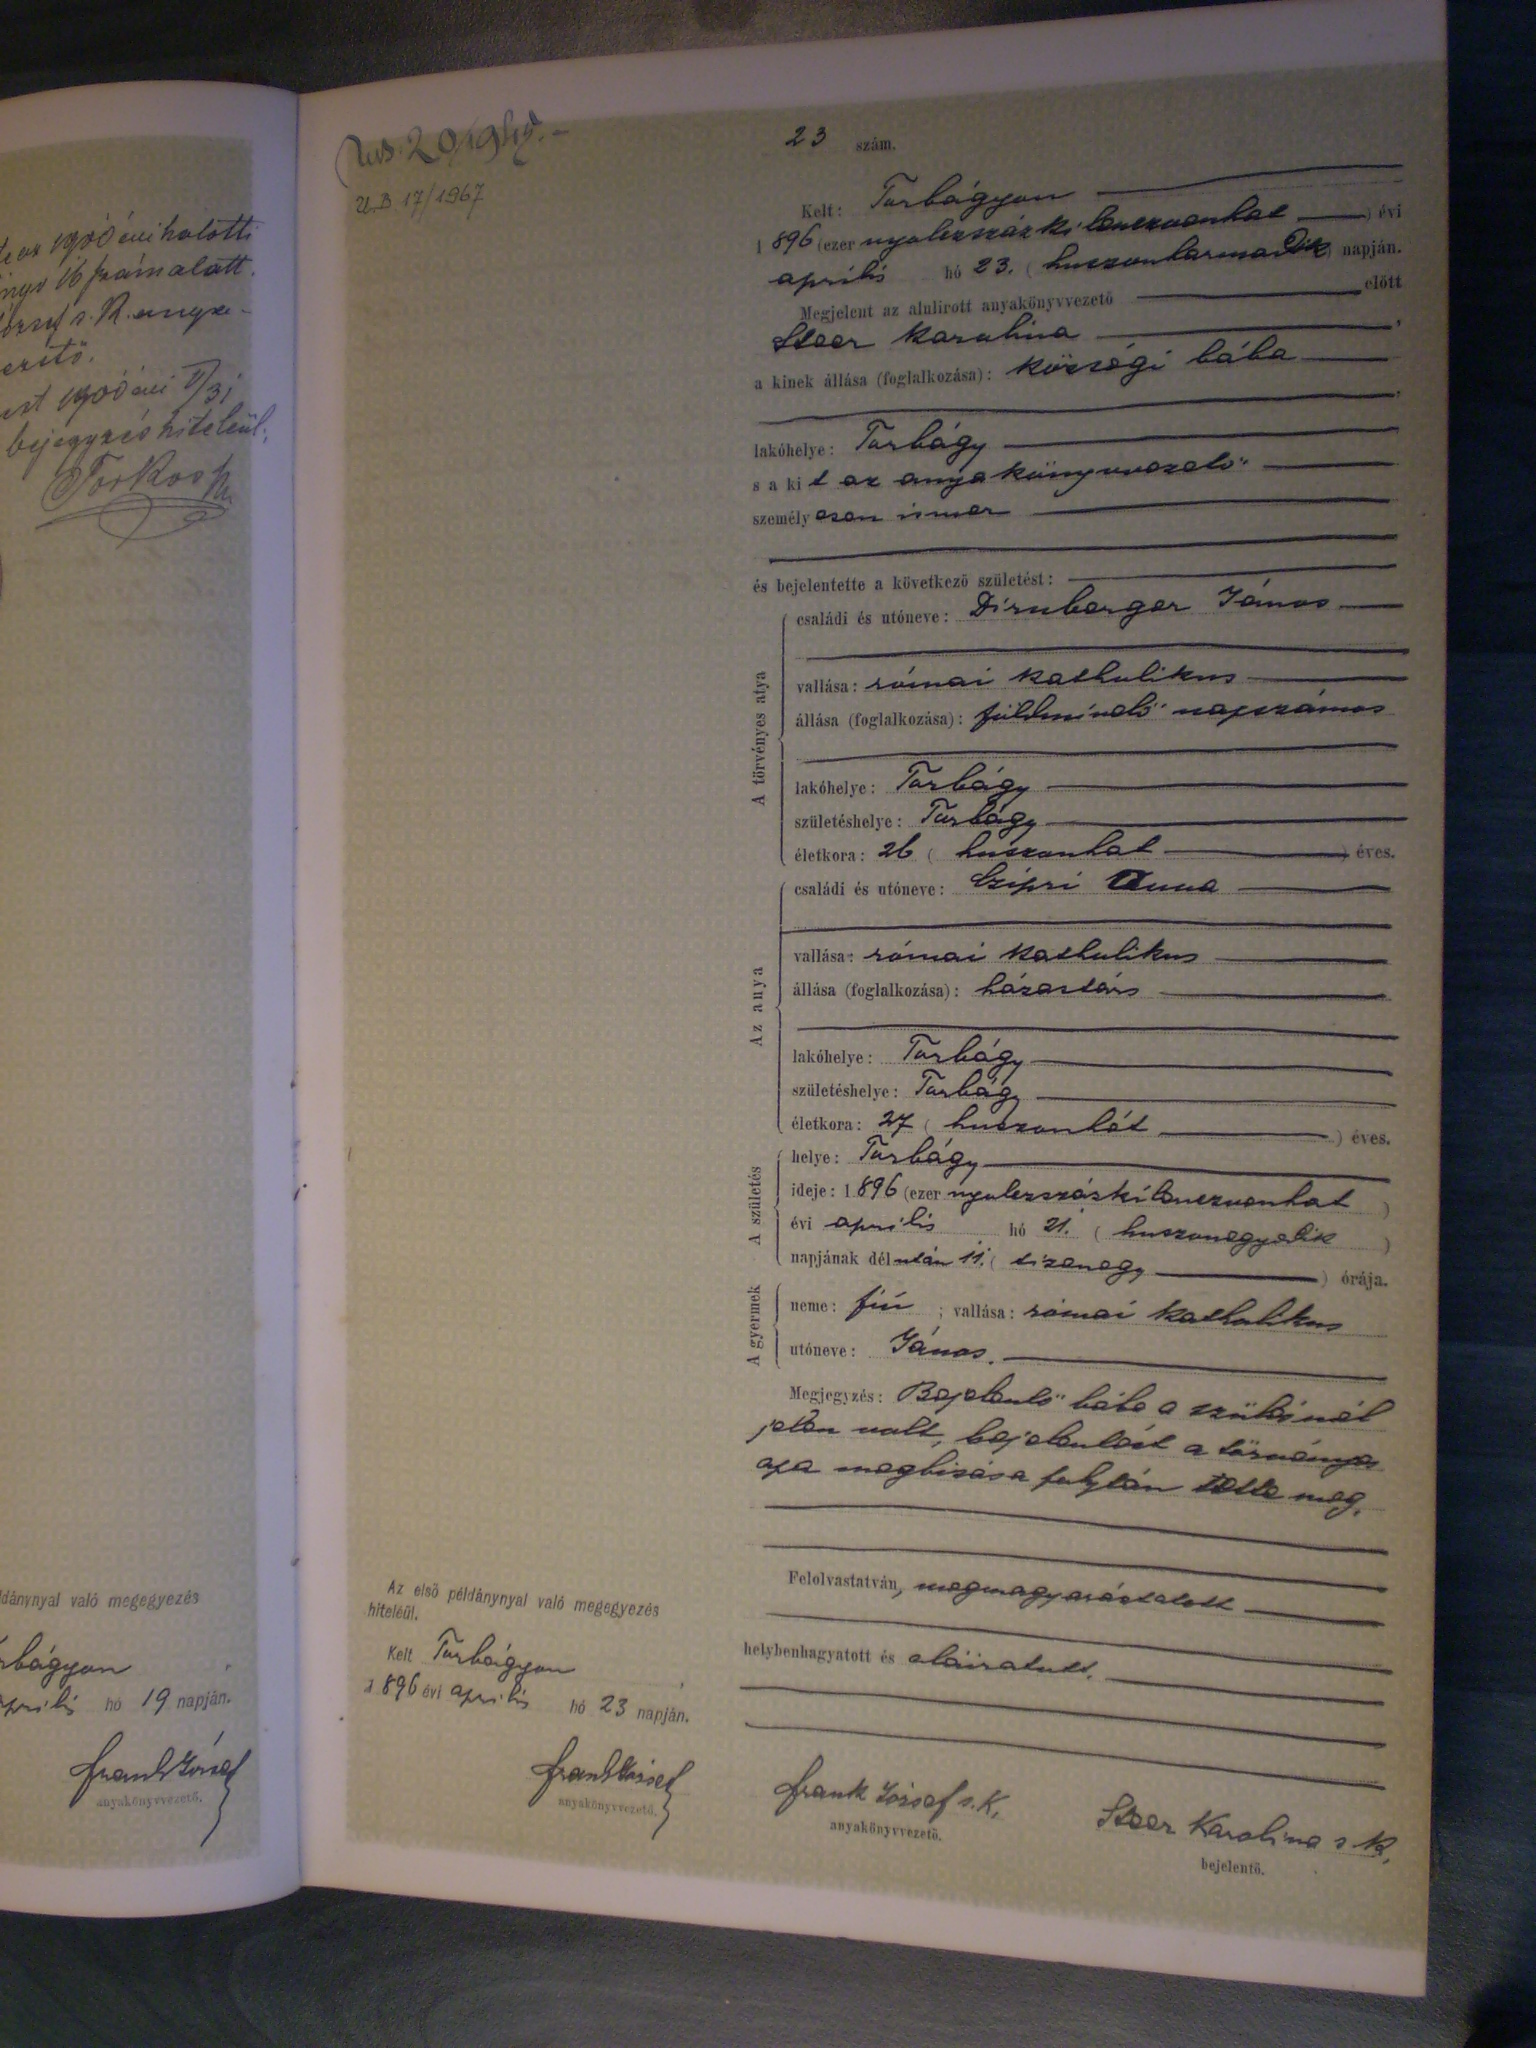 te az 1900 évi halotti
16 szám alatt.
József s. k. anya-
est 1900 évi V/31
bejegyzés hiteléül:
Torkos
ldánynyal való megegyezés
rbágyon
április hó 19 napján.
Frank József
anyakönyvvezető.
U.B. 17/1967
Az első példánynyal való megegyezés
hiteléül.
Kelt Torbágyon
1896 évi április hó 23 napján.
Frank József
anyakönyvvezető.
23 szám.
Kelt: Torbágyon
1896 (ezer nyolczszázkilenczvenhat ) évi
április hó 23. ( huszonharmadik ) napján.
Megjelent az alulirott anyakönyvvezető előtt
Steer Karolina ,
a kinek állása (foglalkozása): községi bába
lakóhelye: Torbágy
s a kit az anyakönyvvezető
személyesen ismer
és bejelentette a következő születést:
A törvényes atya
családi és utóneve: Dirnberger János
vallása: római katholikus
állása (foglalkozása): földmívelő napszámos
lakóhelye: Torbágy
születéshelye: Torbágy
életkora: 26 ( huszonhat ) éves.
Az anya
családi és utóneve: Czipri Anna
vallása: római katholikus
állása (foglalkozása): házastárs
lakóhelye: Torbágy
születéshelye: Torbágy
életkora: 27 ( huszonhét ) éves.
A születés
helye: Torbágy
ideje: 1896 (ezer nyolczszázkilenczvenhat )
évi április hó 21. ( huszonegyedik )
napjának délután 11. ( tizenegy ) órája.
A gyermek
neme: fiú ; vallása: római katholikus
utóneve: János.
Megjegyzés: Bejelentő bába a szülésnél
jelen volt, bejelentést a törvényes
apa megbizása folytán tette meg.
Felolvastatván, megmagyaráztatott
helybenhagyatott és aláiratott.
Frank József s. k.
anyakönyvvezető.
Steer Karolina s. k.
bejelentő.